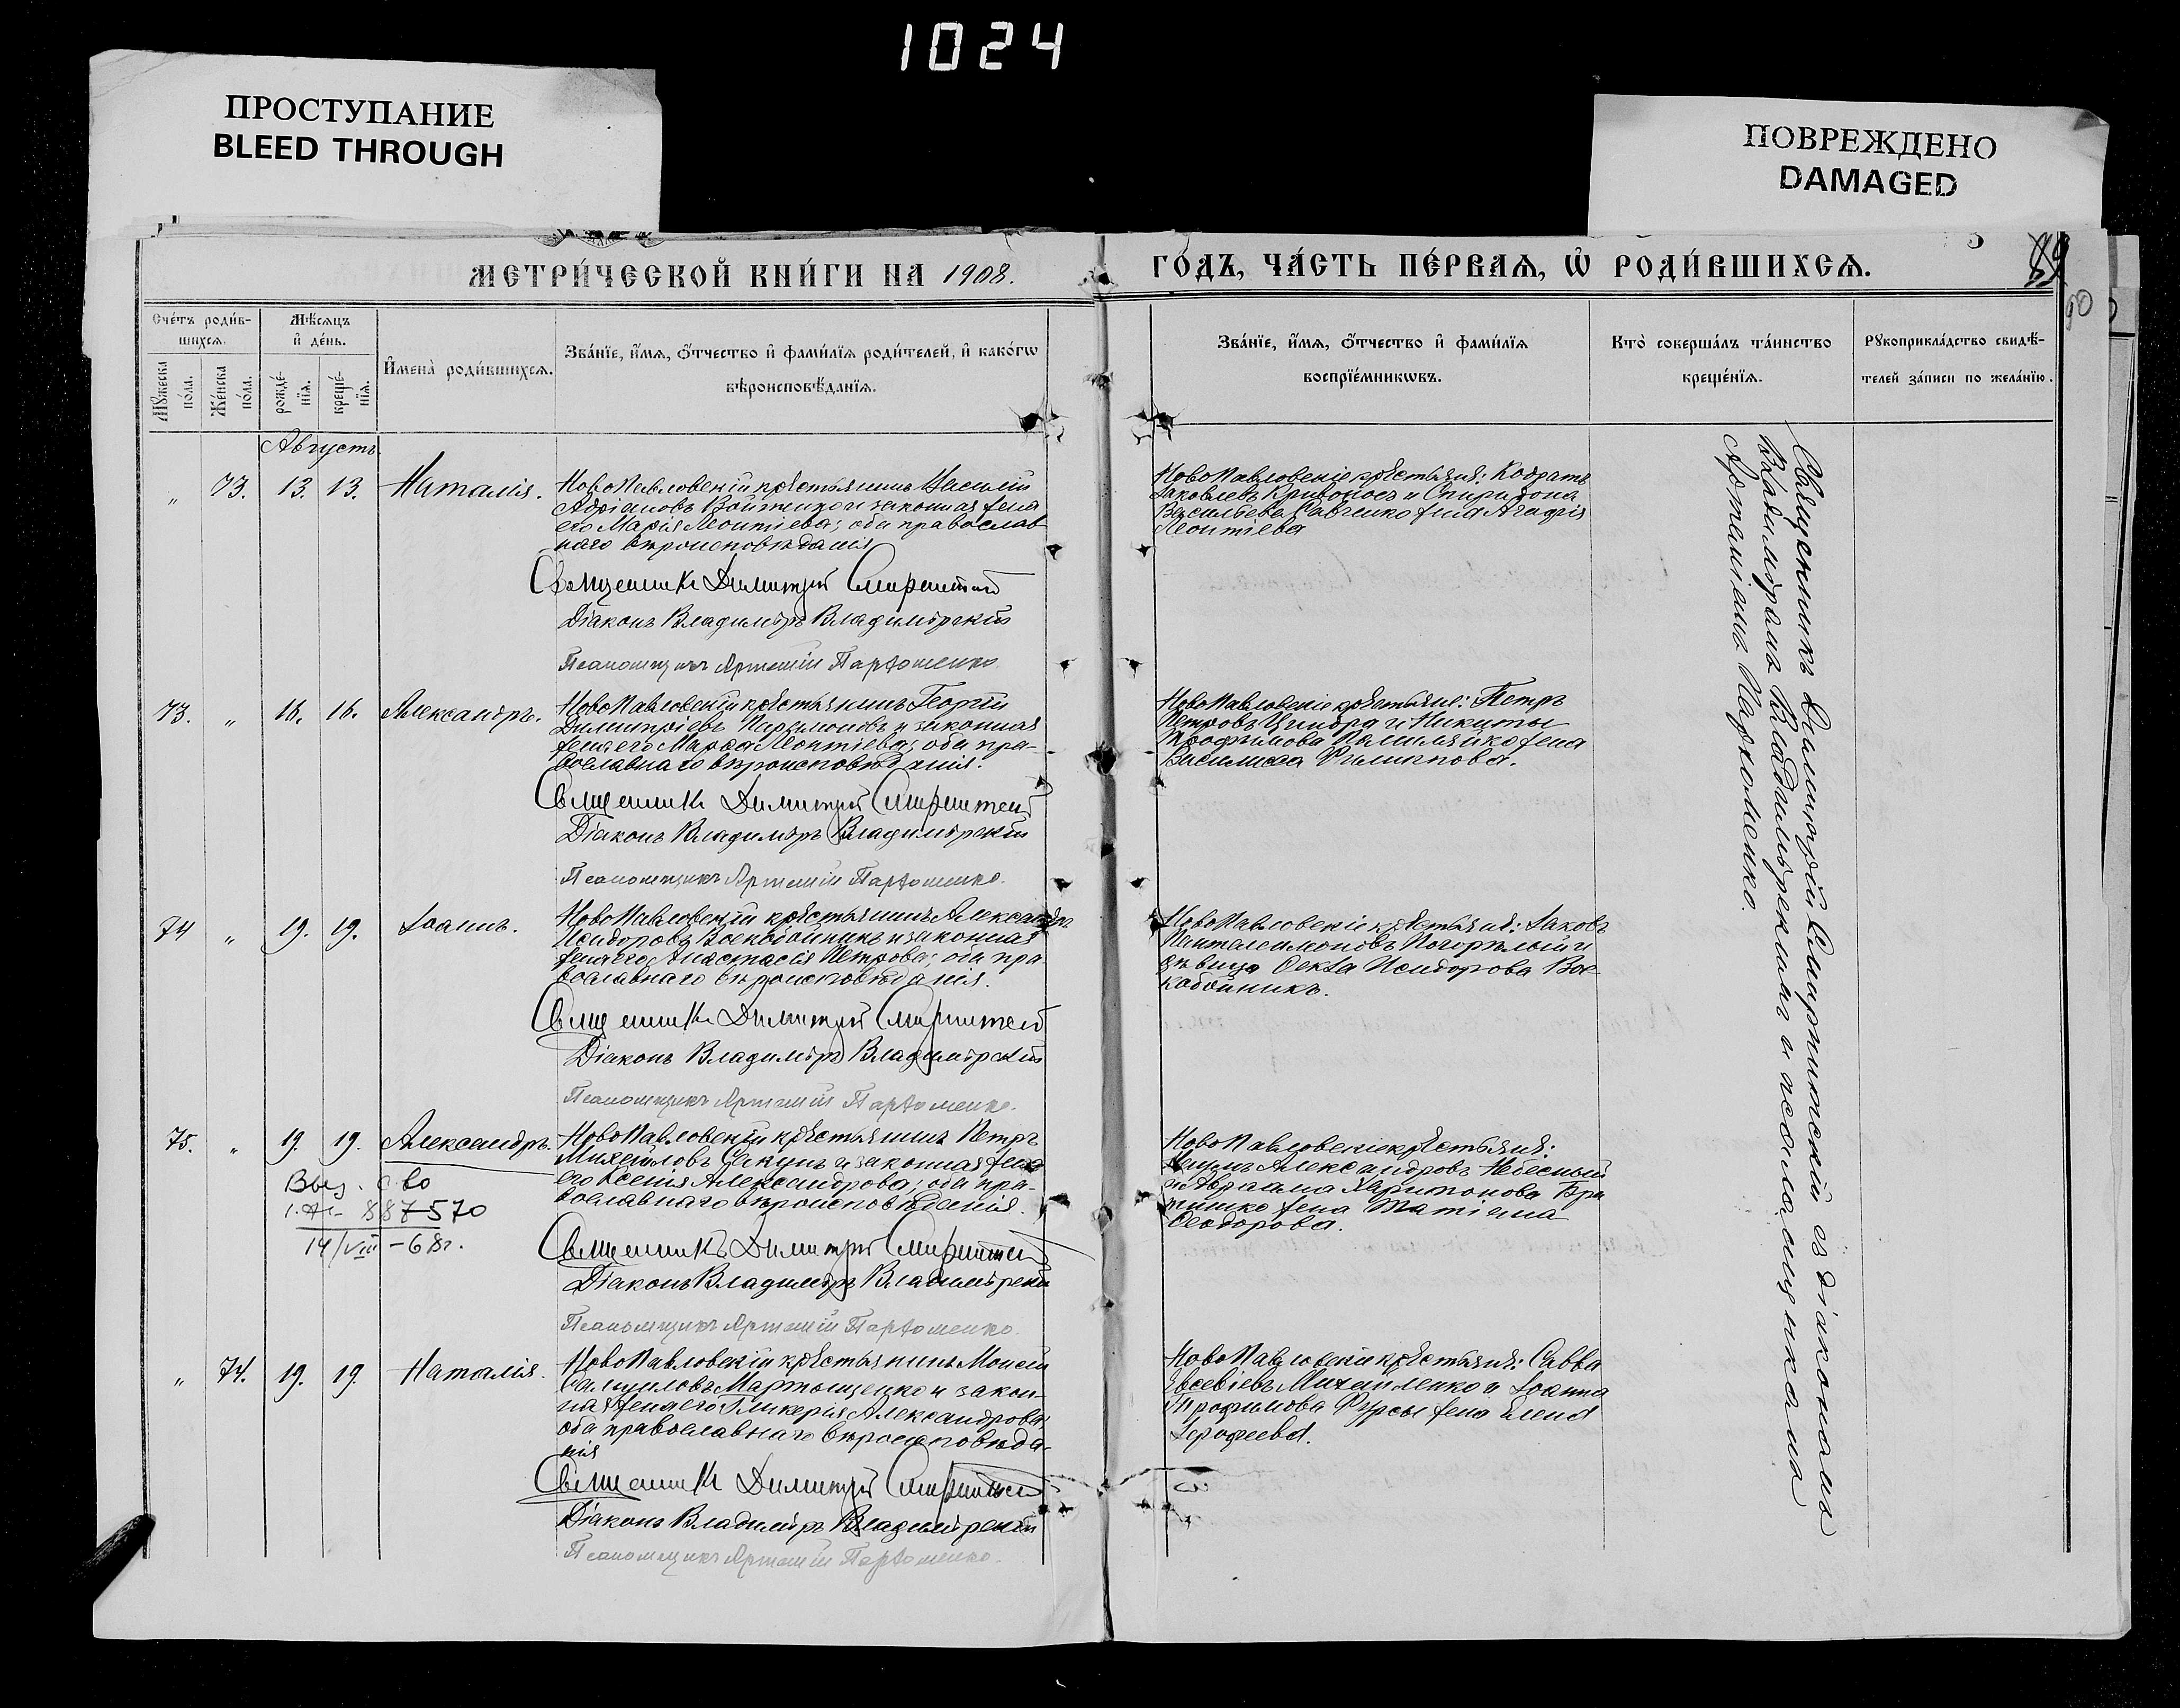 1024
ПРОСТУПАНИЕ
BLEED THROUGH
ПОВРЕЖДЕНО
DAMAGED
МЕТРИ́ЧЕСКОЙ КНИ́ГИ НА 1908.
ГО́ДЪ, ЧА́СТЬ ПЕ́РВАѦ, Ѡ РОДИ́ВШИХСѦ.
89
90
Сче́тъ роди́в-
шихсѧ.
Мꙋжеска по́ла.
Же́нска по́ла.
Мѣ́сѧцъ
и̂ де́нь.
рожде́-нїѧ.
креще́-нїѧ.
И̂мена̀ роди́вшихсѧ.
Зва́нїе, и̂́мѧ, ѻ̂́тчество и̂ фами́лїѧ роди́телей, и̂ како́гѡ
вѣроисповѣ́данїѧ.
Зва́нїе, и̂́мѧ, ѻ̂́тчество и̂ фами́лїѧ
воспрїе́мникѡвъ.
Кто̀ соверша́лъ та́инство
креще́нїѧ.
Рꙋкоприкла́дство свидѣ́-
телей за́писи по жела́нїю.
Августъ
„ 73. 13. 13. Наталія.
НовоПавловскій крестьянинъ Василій
Адріановъ Войтенко и законная жена
его Марія Леонтіева; оба православ-
наго вѣроисповѣданія
Священникъ Димитрій
Діаконъ Владиміръ Владимірскій
Псаломщикъ Артемій Пархоменко
НовоПавловскіе крестьяне: Кодратъ
Іаковлевъ Кривоносъ и Спиридона
Васильева Савченко жена Агафія
Леонтіева
73. „ 16. 16. Александръ.
НовоПавловскій крестьянинъ Георгій
Димитріевъ Парамоновъ и законная
жена его Марѳа Леонтіева; оба пра-
вославнаго вѣроисповѣданія.
Священникъ Димитрій
Діаконъ Владиміръ Владимірскій
Псаломщикъ Артемій Пархоменко.
НовоПавловскіе крестьяне: Петръ
Петровъ и Никиты
Трофимова жена
Василисса Филиппова.
74 „ 19. 19. Іоаннъ.
НовоПавловскій крестьянинъ Александръ
Исидоровъ Воскобойникъ и законная
жена его Анастасія Петрова; оба пра-
вославнаго вѣроисповѣданія.
Священникъ Димитрій
Діаконъ Владиміръ Владимірскій
Псаломщикъ Артемій Пархоменко.
НовоПавловскіе крестьяне: Іаковъ
Пантелеимоновъ Погорѣлый и
дѣвица Ѳекла Исидорова Вос-
кобойникъ.
75. „ 19. 19. Александръ.
Выд. с-во
887570
14/VIII-68г.
НовоПавловскій крестьянинъ Петръ
Михайловъ Сакунъ и законная жена
его Ксенія Александрова; оба пра-
вославнаго вѣроисповѣданія.
Священникъ Димитрій
Діаконъ Владиміръ Владимірскій
Псаломщикъ Артемій Пархоменко.
НовоПавловскіе крестьяне:
Наумъ Александровъ Небесный
и Авраама Харитонова
жена Татіана
Ѳеодорова.
„ 74. 19. 19. Наталія.
НовоПавловскій крестьянинъ Моисей
Самуиловъ Мартыщенко и закон-
ная жена его Гликерія Александрова;
оба православнаго вѣроисповѣда-
нія
Священникъ Димитрій
Діаконъ Владиміръ Владимірскій
Псаломщикъ Артемій Пархоменко.
НовоПавловскіе крестьяне: Савва
Евсевіевъ Михайленко и Іоанна
Трофимова Фурсы жена Елена
Іерофеева.
Священникъ Димитрій съ діакономъ
Владиміромъ Владимірскимъ и псаломщикомъ
Артеміемъ Пархоменко.